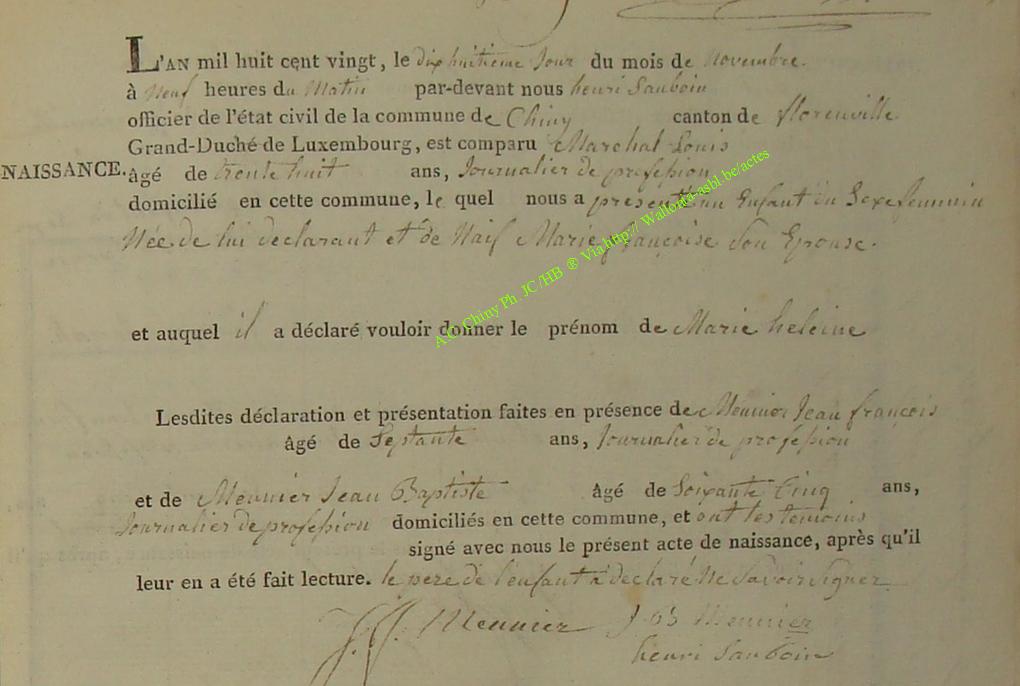 L'AN mil huit cent vingt, le dix huitieme jour du mois de Novembre.
à Neuf heures du Matin par-devant nous henri Sauboin
officier de l'état civil de la commune de Chiny canton de florenville
Grand-Duché de Luxembourg, est comparu Marchal Louis
NAISSANCE. âgé de trente huit ans, Journalier de profession
domicilié en cette commune, le quel nous a presenté un Enfant du Sexe feminin
Née de lui declarant et de Naif Marie françoise Son Epouse.
et auquel il a déclaré vouloir donner le prénom de Marie heleine
Lesdites déclaration et présentation faites en présence de Meunier Jean françois
âgé de Septante ans, Journalier de profession
et de Meunier Jean Baptiste âgé de Soixante Cinq ans,
Journalier de profession domiciliés en cette commune, et ont les temoins
signé avec nous le présent acte de naissance, après qu'il
leur en a été fait lecture. le pere de l'enfant a declaré Ne Savoir Signer
J f Meunier J B Meunier
henri Sauboin
A.C. Chiny Ph. JC /HB ® Via http:// Wallonia-asbl.be/actes